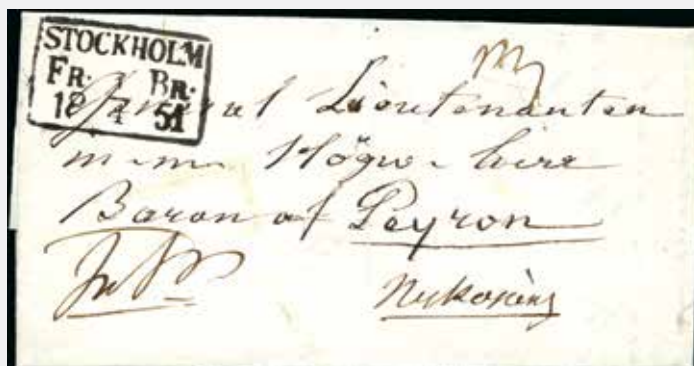 STOCKHOLM
FR. BR.
18 1/4 51
General Lieutenanten
m. m. Högw.
Baron af Peyron
Nyköping